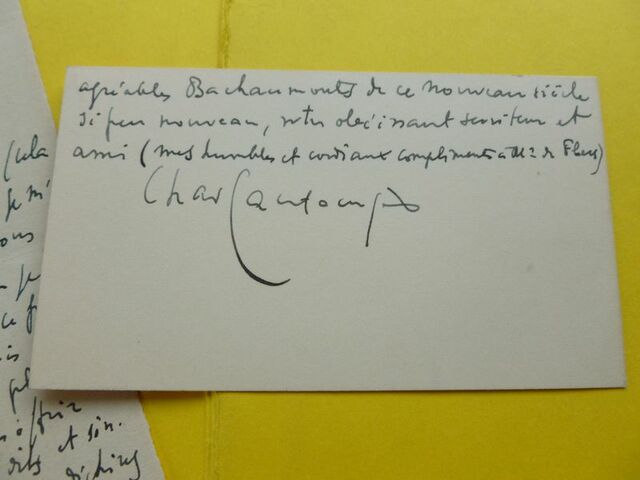 agréables Bachaumonts de ce nouveau siècle
si peu nouveau, votre obéissant serviteur et
ami (mes humbles et cordiaux compliments à Me de Flers)
Char
(cela
je m'
ous
ce f
is
offrir
dits et sin.